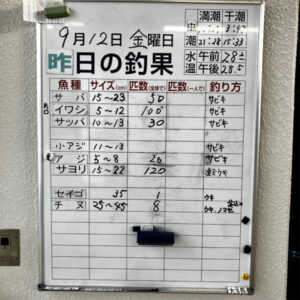 満潮 干潮
9月12日 金曜日
中潮 21:28 15:33
昨日の釣果
水温 午前 28
午後 28.5
魚種 サイズ(cm) 匹数(全体で) 匹数(一人で) 釣り方
サバ 15~23 50 サビキ
イワシ 5~12 100 サビキ
サッパ 10~13 30 サビキ
小アジ 11~13 サビキ
アジ 5~8 20 サビキ
サヨリ 15~22 120
セイゴ 35 1 ウキ
チヌ 25~45 8 ウキ